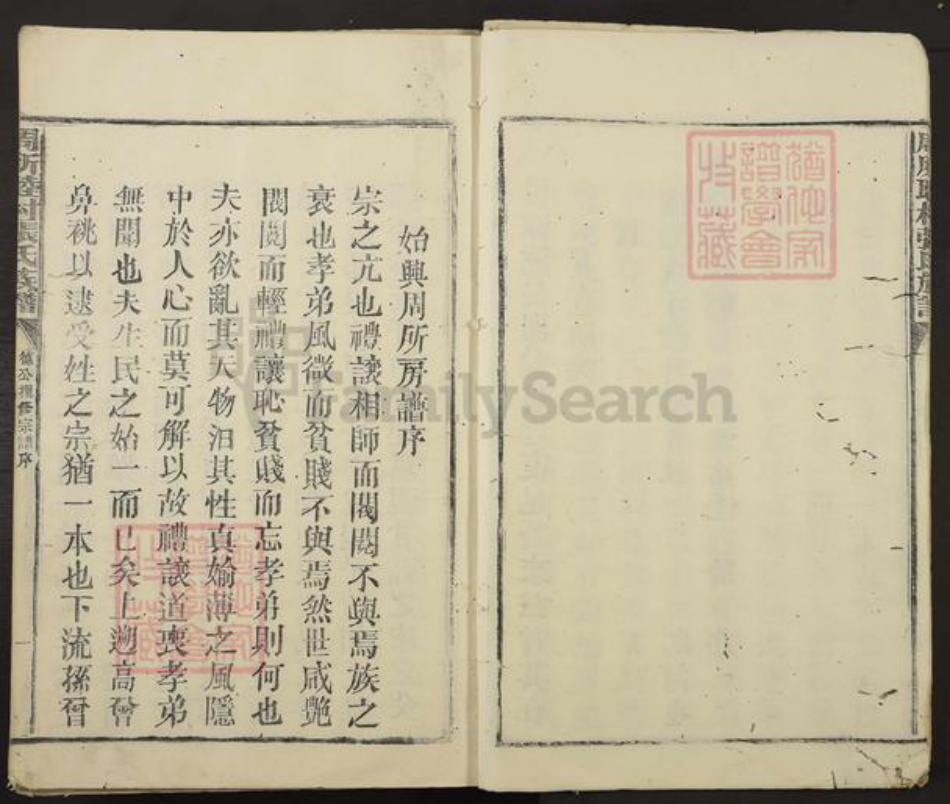 始興周所房譜序
宗之亢也禮讓相師而閥閱不與焉族之
衰也孝弟風微而貧賤不與焉然世咸艷
閥閱而輕禮讓恥貧賤而忘孝弟則何也
夫亦欲亂其天物汩其性真媮薄之風隱
中於人心而莫可解以故禮讓道喪孝弟
無聞也夫生民之始一而已矣上遡高曾
鼻祧以逮受姓之宗猶一本也下流孫曾
周所 村張氏族譜
序
FamilySearch
猶他家
譜學會
收藏